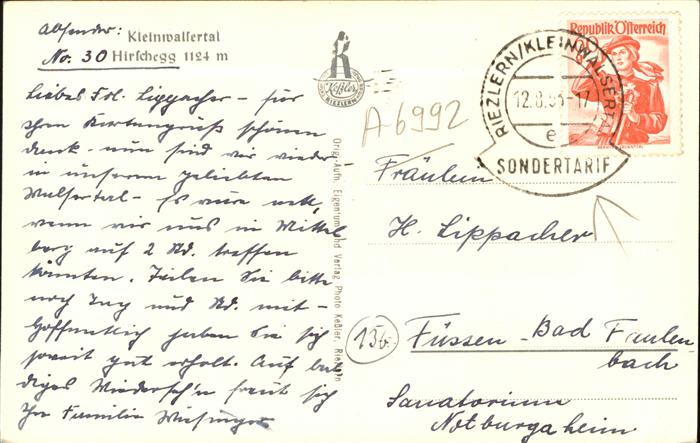 Absender: Kleinwalsertal
No. 30 Hirschegg 1124 m
Liebes Frl. Lippacher - für
Ihren Kartengruß schönen
Dank - nun sind wir wieder
in unserem geliebten
Walsertal - Es wäre nett,
wenn wir uns in Mittel
berg auf 2 Std. treffen
könnten. Teilen Sie bitte
noch Tag und Std. mit -
Hoffentlich haben Sie sich
soweit gut erholt. Auf bal
diges Wiederseh'n freut sich
Ihre Familie Wiesinger
Keßler
RIEZLERN
Orig.-Aufn. Eigentum und Verlag Photo Keßler, Riezlern
A6992
Republik Österreich
RIEZLERN/KLEINWALSERTAL
12.8.55-17
e
SONDERTARIF
Fräulein
H. Lippacher
13b
Füssen - Bad Faulen
bach
Sanatorium
Notburgaheim